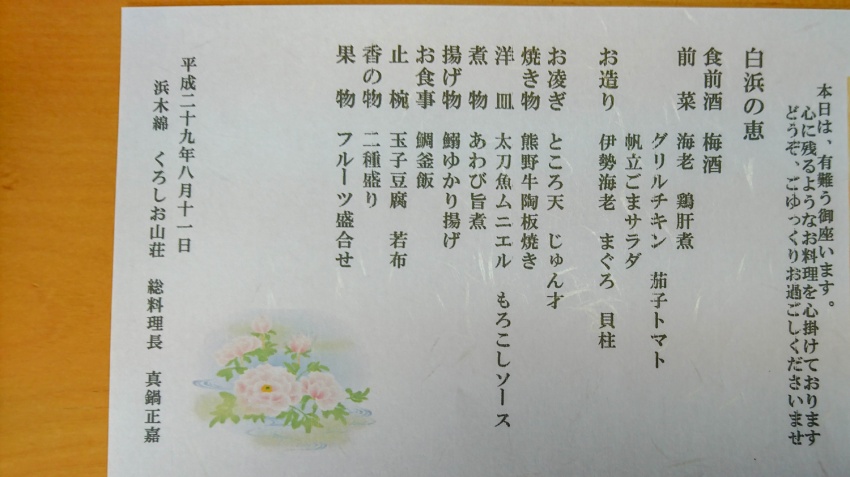 本日は、有難う御座います。
心に残るようなお料理を心掛けております
どうぞ、ごゆっくりお過ごしくださいませ
白浜の恵
食前酒 梅酒
前菜 海老 鶏肝煮
グリルチキン 茄子トマト
帆立ごまサラダ
お造り 伊勢海老 まぐろ 貝柱
お凌ぎ ところ天 じゅん才
焼き物 熊野牛陶板焼き
洋皿 太刀魚ムニエル もろこしソース
煮物 あわび旨煮
揚げ物 鰯ゆかり揚げ
お食事 鯛釜飯
止椀 玉子豆腐 若布
香の物 二種盛り
果物 フルーツ盛合せ
平成二十九年八月十一日
浜木綿 くろしお山荘 総料理長 真鍋正嘉